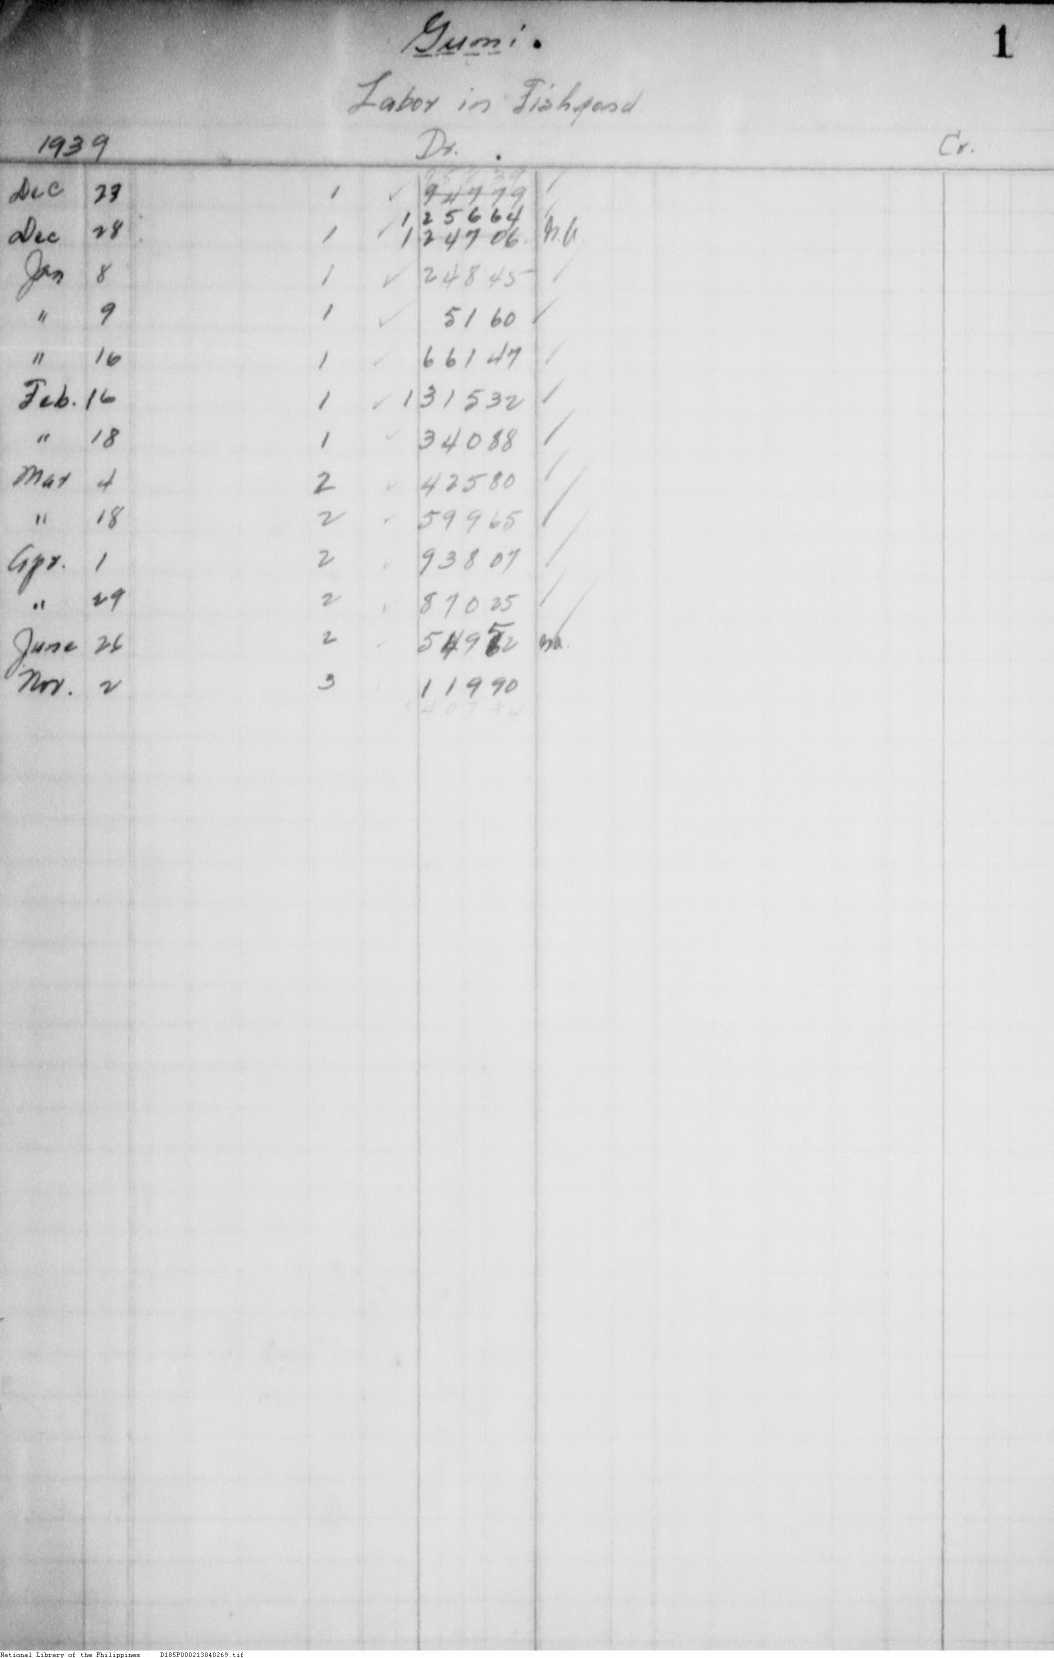 Gumi. 1
Labor in Fishpond
1939 Dr. Cr.
Dec 23 1 ✓ 94779 ✓
125664
Dec 28 1 ✓ 124706
Jan 8 1 ✓ 24845 ✓
" 9 1 ✓ 5160 ✓
" 16 1 ✓ 66147 ✓
Feb. 16 1 ✓ 131532 ✓
" 18 1 ✓ 34088 ✓
Mar 4 2 ✓ 42580 ✓
" 18 2 ✓ 59965 ✓
Apr. 1 2 93807 ✓
" 29 2 87025 ✓
June 26 2
Nov. 2 3 11990
National Library of the Philippines D185P000213040269.tif